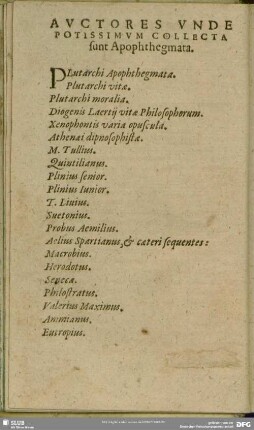 AVCTORES VNDE
POTISSIMVM COLLECTA
sunt Apophthegmata.
PLutarchi Apophthegmata.
Plutarchi vitæ.
Plutarchi moralia.
Diogenis Laertij vitæ Philosophorum.
Xenophontis varia opuscula.
Athenæi dipnosophistæ.
M. Tullius.
Quintilianus.
Plinius senior.
Plinius Iunior.
T. Liuius.
Suetonius.
Probus Aemilius.
Aelius Spartianus, & cæteri sequentes:
Macrobius.
Herodotus.
Seneca.
Philostratus.
Valerius Maximus.
Ammianus.
Eutropius.
SLUB
DFG